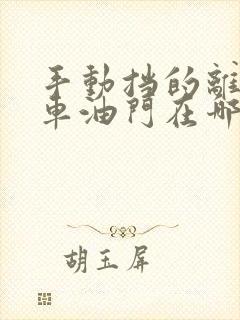 手動挡的離
車油門在哪
胡玉屏